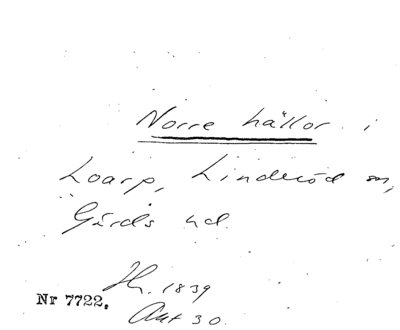 Norre hällor i
Loarp, Linderöd sn,
Gärds hd.
Hr. 1839
Nr 7722.
Akt 30.